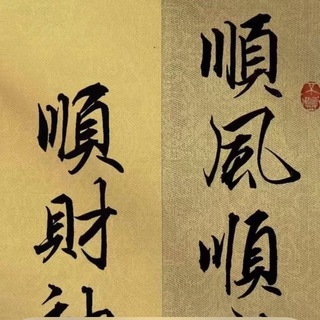 順風順
順財